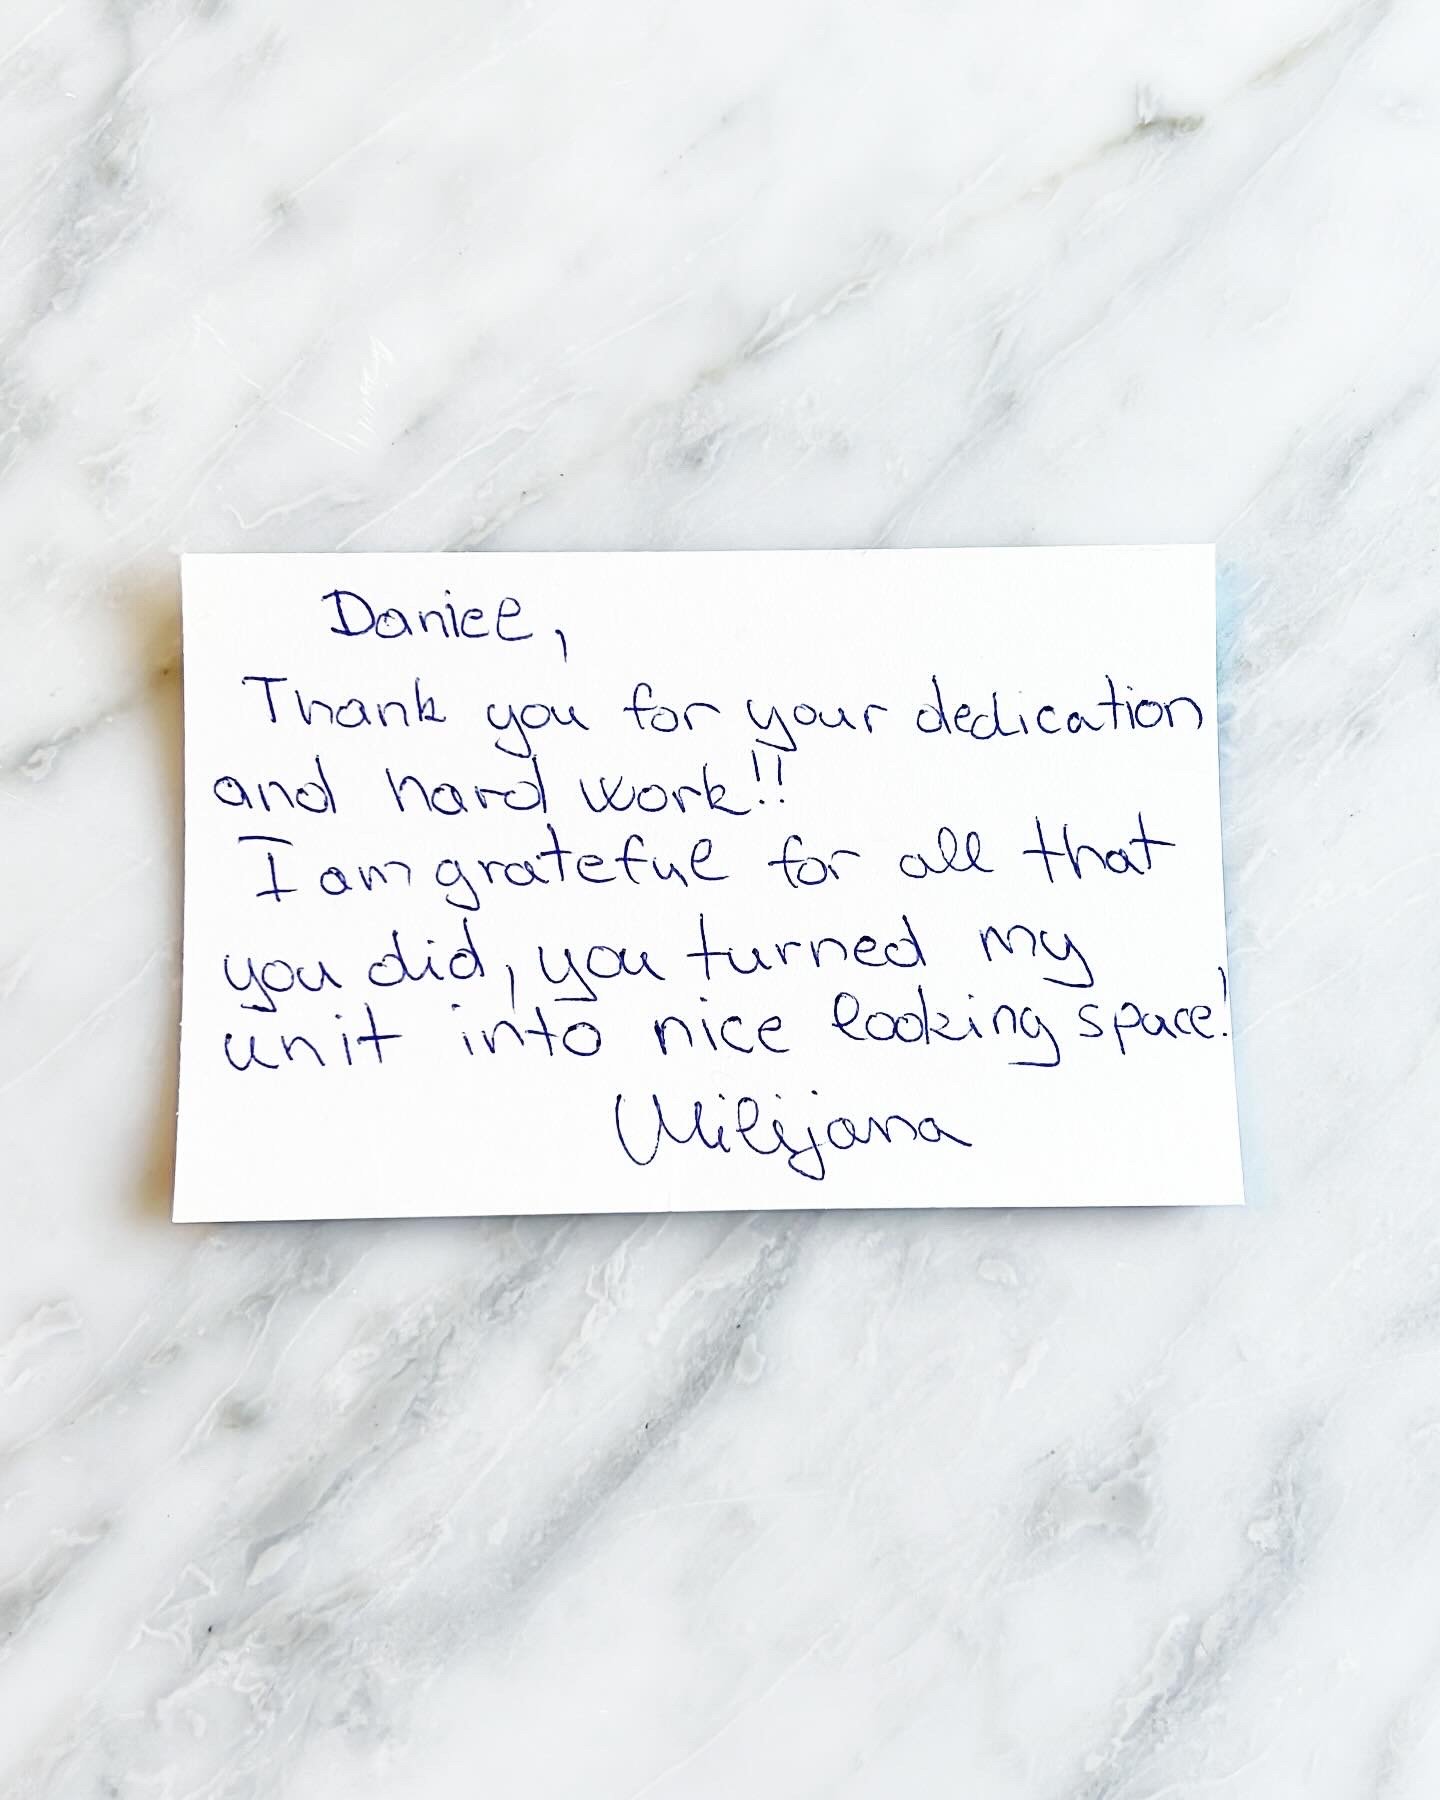 Daniel,
Thank you for your dedication
and hard work!!
I am grateful for all that
you did, you turned my
unit into nice looking space!
Milijana